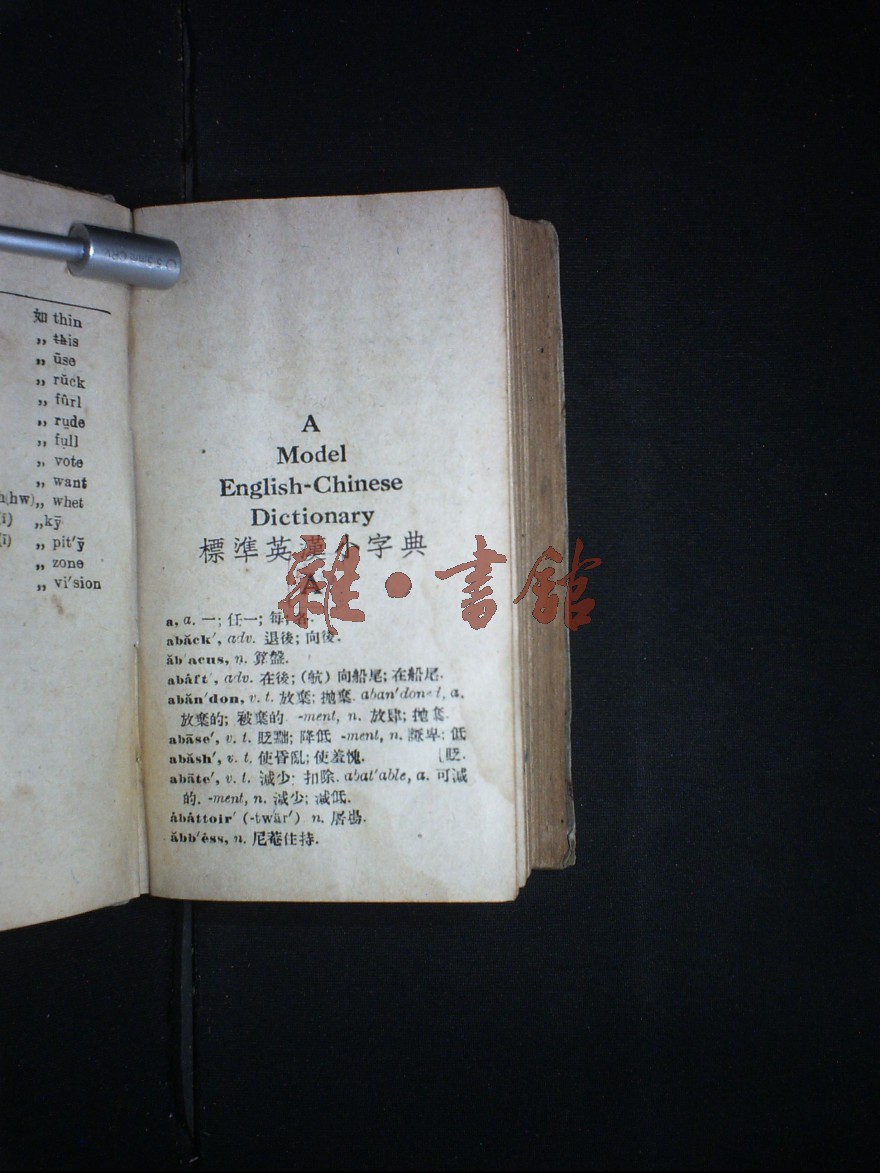 如 thin
„ this
„ ūse
„ rŭck
„ fûrl
„ rṳde
„ fụll
„ vote
„ want
hw)„ whet
(i) „ kȳ
(i) „ pit′y̆
„ zone
„ vi′sion
A
Model
English-Chinese
Dictionary
標準英漢小字典
A
雜·書館
a, a. 一; 任一; 每; 各.
abăck′, adv. 退後; 向後.
ăb′acus, n. 算盤.
abȧft′, adv. 在後; (航) 向船尾; 在船尾.
abăn′don, v. t. 放棄; 拋棄. aban′doned, a.
放棄的; 被棄的. -ment, n. 放肆; 拋棄.
abāse′, v. t. 貶黜; 降低 -ment, n. 謙卑; 低
abăsh′, v. t. 使昏亂; 使羞愧. [貶.
abāte′, v. t. 減少; 扣除. abat′able, a. 可減
的. -ment, n. 減少; 減低.
ȧbȧttoir′ (-twär′) n. 屠場.
ăbb′ĕss, n. 尼菴住持.